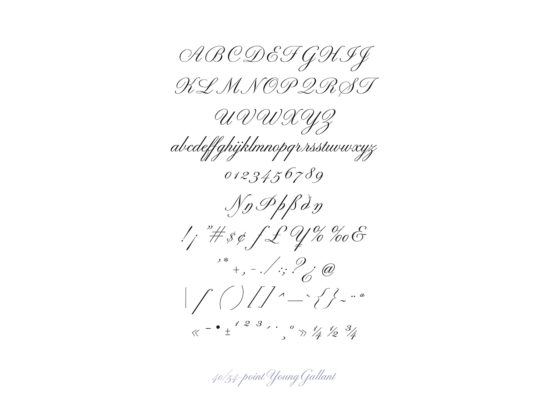 ABCDEFGHIJ
KLMNOPQRST
UVWXYZ
abcdeffghijklmnopqrrsstuvwxyz
0123456789
ŊÞþßðŋ
!¡"#$¢ƒ£¥%‰&
'*+,-./:;?¿@
|ſ()[]^—`{}~¨ª
«¯•±¹²³´·¸º»¼½¾
40/54-point Young Gallant